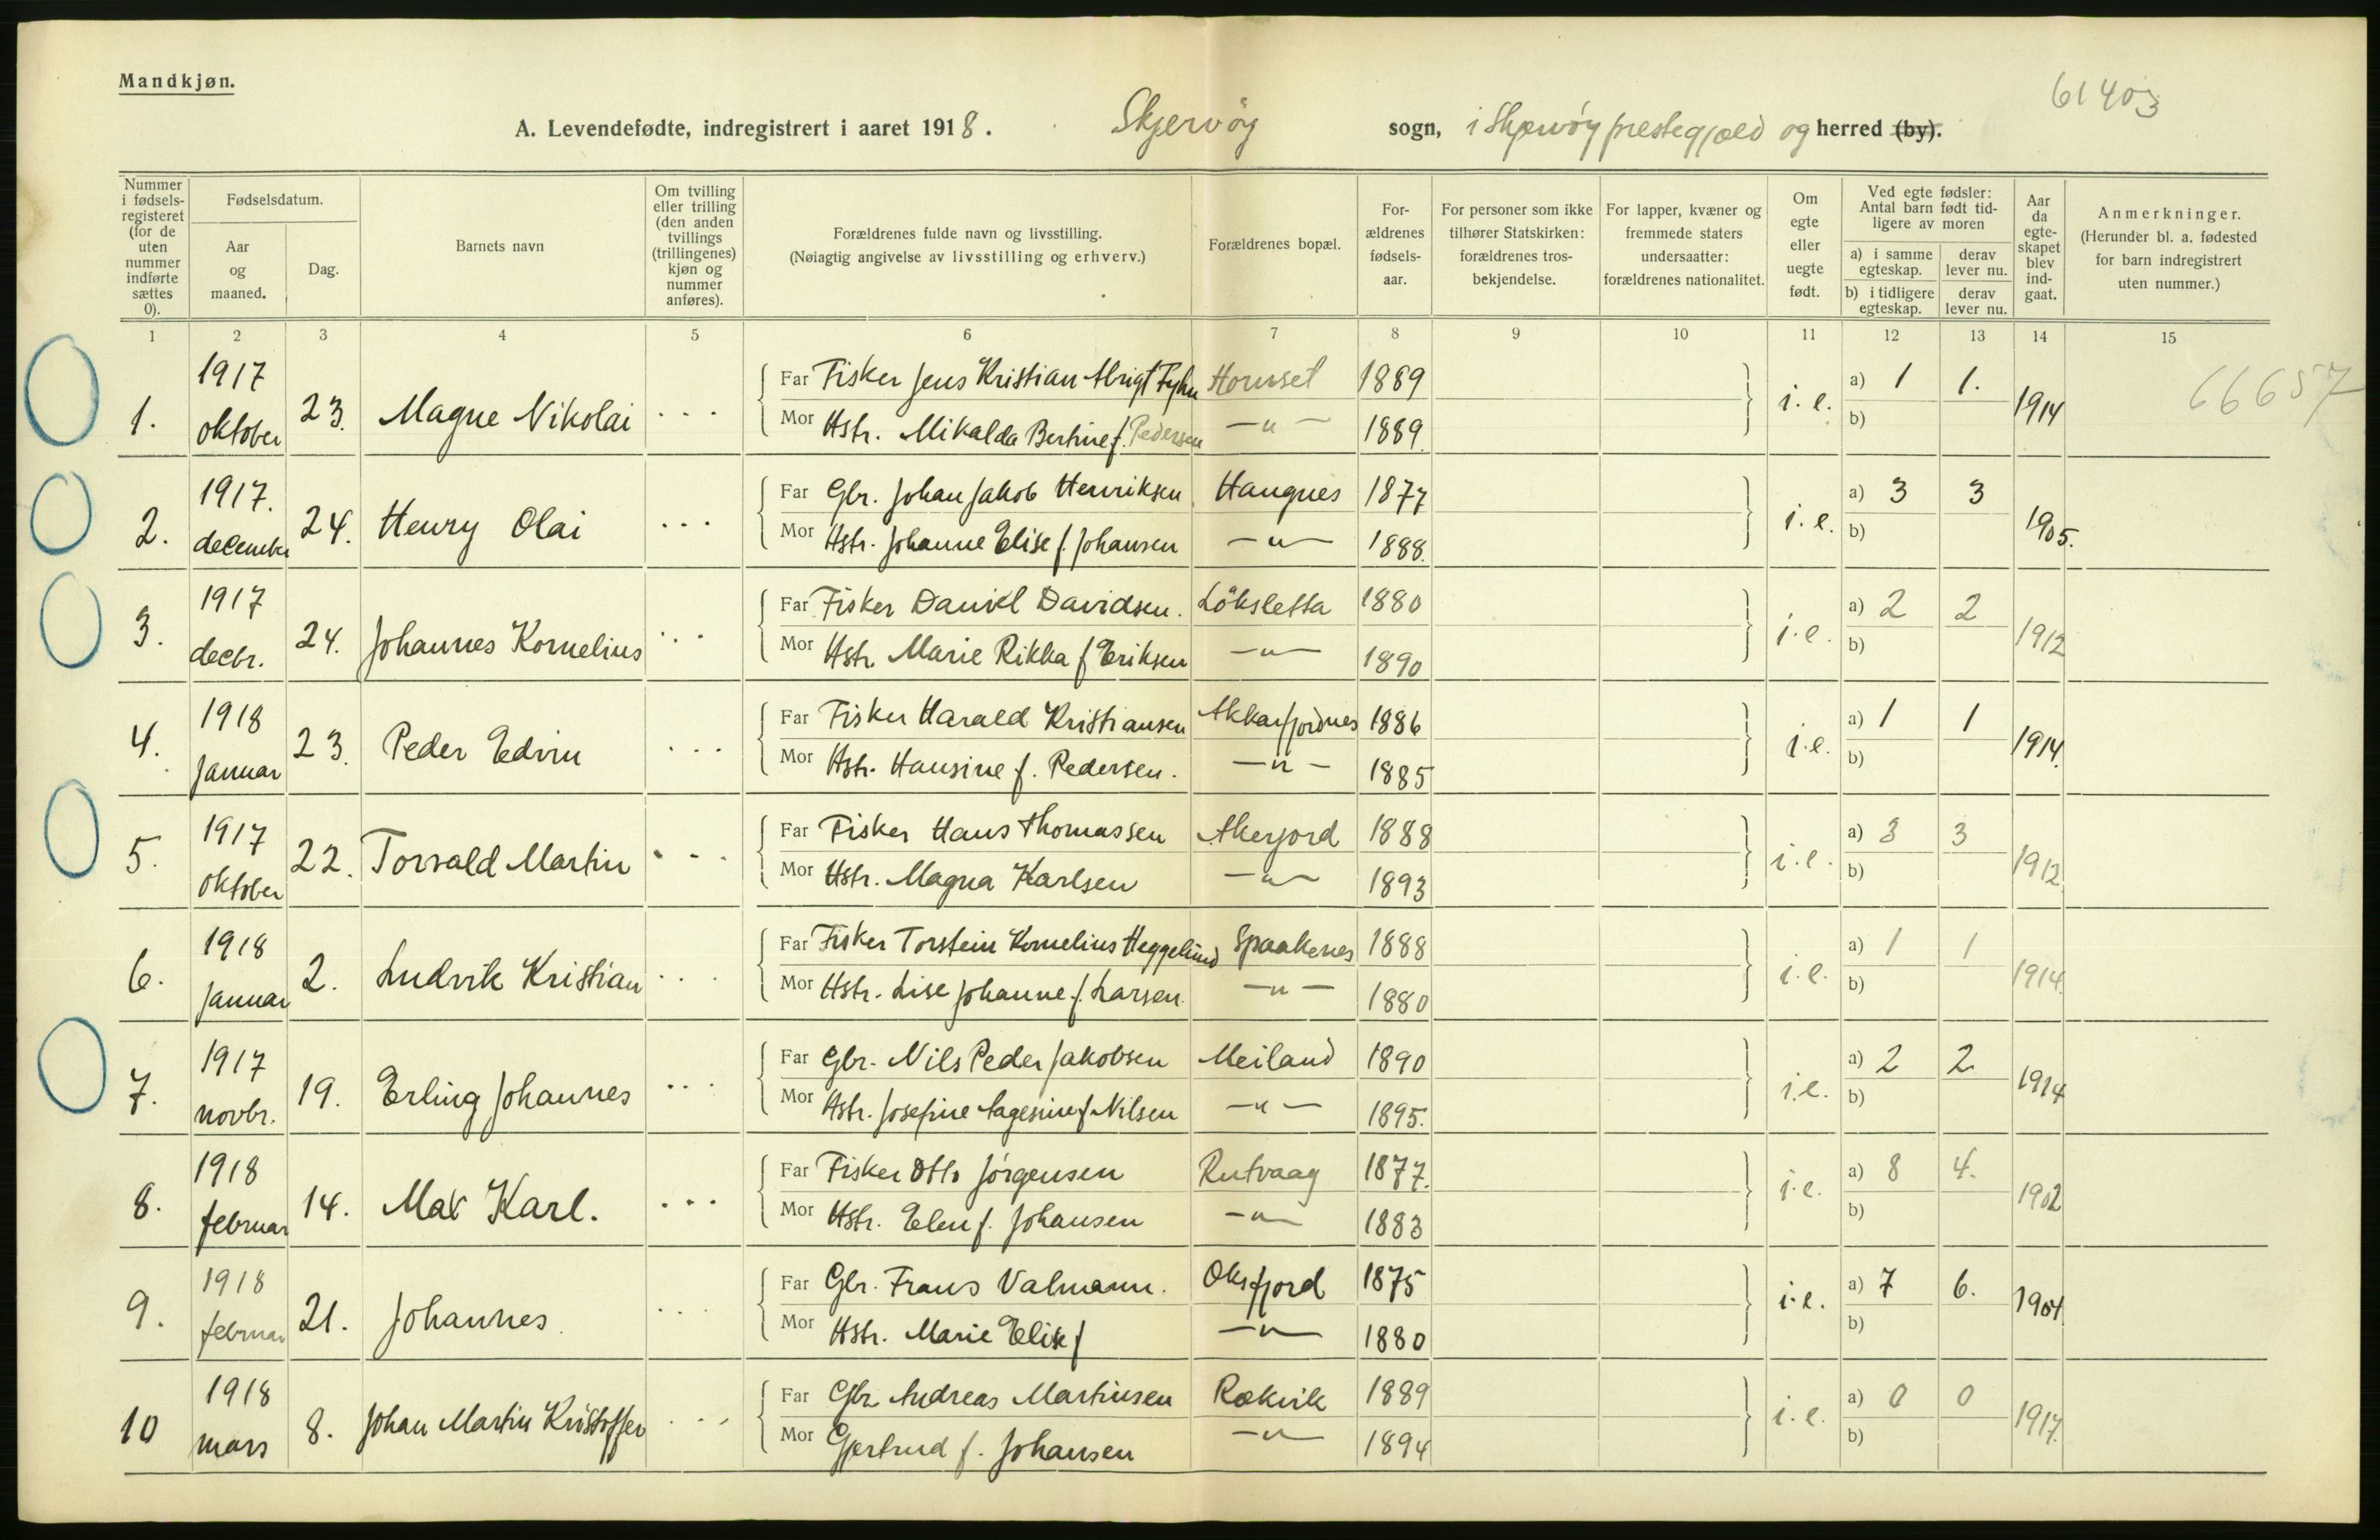 Mandkjøn.
61403
A. Levendefødte, indregistrert i aaret 1918. Skjervöy sogn, i Skjervöy prestegjæld og herred (by).
Nummer i fødselsregisteret (for de uten nummer indførte sættes 0).
Fødselsdatum.
Aar og maaned.
Dag.
Barnets navn
Om tvilling eller trilling (den anden tvillings (trillingenes) kjøn og nummer anføres).
Forældrenes fulde navn og livsstilling.
(Nøiagtig angivelse av livsstilling og erhverv.)
Forældrenes bopæl.
Forældrenes fødselsaar.
For personer som ikke tilhører Statskirken: forældrenes trosbekjendelse.
For lapper, kvæner og fremmede staters undersaatter: forældrenes nationalitet.
Om egte eller uegte født.
Ved egte fødsler: Antal barn født tidligere av moren
a) i samme egteskap. derav lever nu.
b) i tidligere egteskap. derav lever nu.
Aar da egteskapet blev indgaat.
Anmerkninger.
(Herunder bl. a. fødested for barn indregistrert uten nummer.)
1 2 3 4 5 6 7 8 9 10 11 12 13 14 15
1. 1917 oktober 23. Magne Nikolai ... Far Fisker Jens Kristian Hornset 1889 i.e. a) 1 1. 1914 66657
Mor Hstr. Mikalda Bertine f. Pedersen —"— 1889. b)
2. 1917. december 24. Henry Olai ... Far Gbr. Johan Jakob Henriksen Haugnes 1877 i.e. a) 3 3 1905.
Mor Hstr. Johanne Elise f. Johansen —"— 1888. b)
3. 1917 decbr. 24. Johannes Kornelius ... Far Fisker Daniel Davidsen. Löksletta 1880 i.e. a) 2 2 1912
Mor Hstr. Marie Rikka f Eriksen —"— 1890 b)
4. 1918 januar 23. Peder Edvin ... Far Fisker Harald Kristiansen Akkarfjordnes 1886 i.e. a) 1 1 1914.
Mor Hstr. Hansine f. Pedersen. —"— 1885 b)
5. 1917 oktober 22. Torvald Martin ... Far Fisker Hans Thomassen Akerjord 1888 i.e. a) 3 3 1912
Mor Hstr. Magna Karlsen —"— 1893 b)
6. 1918 januar 2. Ludvik Kristian ... Far Fisker Torstein Kornelius Heggelund Spaakenes 1888 i.e. a) 1 1 1914.
Mor Hstr. Lise Johanne f. Larsen. —"— 1880 b)
7. 1917 novbr. 19. Erling Johannes ... Far Gbr. Nils Peder Jakobsen Meiland 1890 i.e. a) 2 2 1914
Mor Hstr. Josefine Aagesine f Nilsen —"— 1895. b)
8. 1918 februar 14. Max Karl. ... Far Fisker Otto Jörgensen Rutvaag 1877. i.e. a) 8 4. 1902
Mor Hstr. Elen f. Johansen —"— 1883 b)
9. 1918 februar 21. Johannes ... Far Gbr. Frans Valmann. Oksfjord 1875 i.e. a) 7 6. 1904
Mor Hstr. Marie Elise f —"— 1880 b)
10 1918 mars 8. Johan Martin Kristoffer ... Far Gbr Andreas Martinsen Rækvik 1889 i.e. a) 0 0 1917.
Mor Gjertrud f. Johansen —"— 1894 b)